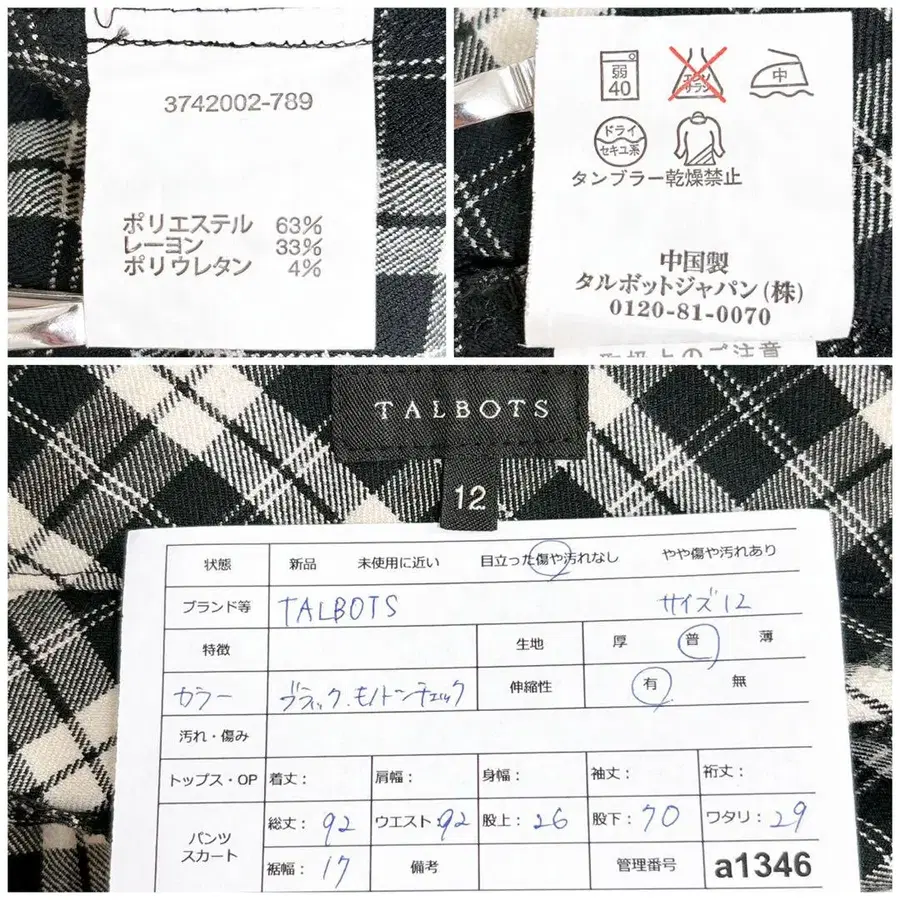 3742002-789
ポリエステル 63%
レーヨン 33%
ポリウレタン 4%
弱
40
エンソ
サラシ
中
ドライ
セキユ系
タンブラー乾燥禁止
中国製
タルボットジャパン(株)
0120-81-0070
取扱上のご注意
TALBOTS
12
状態 新品 未使用に近い 目立った傷や汚れなし やや傷や汚れあり
ブランド等 TALBOTS サイズ12
特徴 生地 厚 普 薄
カラー ブラック.モノトーンチェック 伸縮性 有 無
汚れ・傷み
トップス・OP 着丈: 肩幅: 身幅: 袖丈: 裄丈:
パンツ
スカート
総丈: 92 ウエスト: 92 股上: 26 股下: 70 ワタリ: 29
裾幅: 17 備考 管理番号 a1346